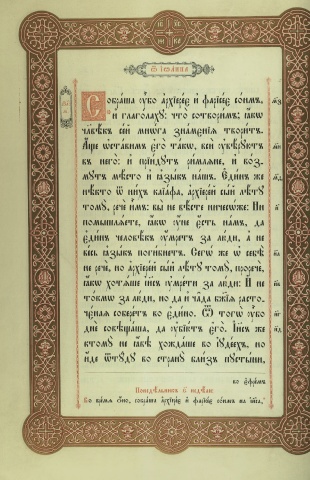 Ѿ іѡанна
Собраша ѹбо архїерее и фарїсее сонмъ,
и глаголахѹ: что сотворимъ; ꙗкѡ
человѣкъ сей многа знаменїѧ творитъ.
Аще ѡставимъ его такѡ, вси ѹвѣрѹютъ
въ него: и прїидѹтъ римлѧне, и воз-
мѹтъ мѣсто и ꙗзыкъ нашъ. Единъ же
нѣкто ѿ нихъ каїафа, архїерей сый лѣтѹ
томѹ, рече имъ: вы не вѣсте ничесѡже: Ни
помышлѧете, ꙗкѡ ѹне есть намъ, да
единъ человѣкъ ѹмретъ за люди, а не
весь ꙗзыкъ погибнетъ. Сегѡ же ѡ себѣ
не рече, но архїерей сый лѣтѹ томѹ, прорече,
ꙗкѡ хотѧше іисъ ѹмрети за люди: И не
токмѡ за люди, но да и чада бжїѧ расто-
ченаѧ соберетъ во едино. Ѿ тогѡ ѹбо
дне совѣщаша, да ѹбїютъ его. Іисъ же
ктомѹ не ꙗвѣ хождаше во іѹдеехъ, но
иде ѿтѹдѹ во странѹ близъ пѹстыни,
во ефремъ
Понедѣльникъ ѕ недѣли:
Во времѧ оно, собраша архїерее и фарїсее сонмъ на іиса,